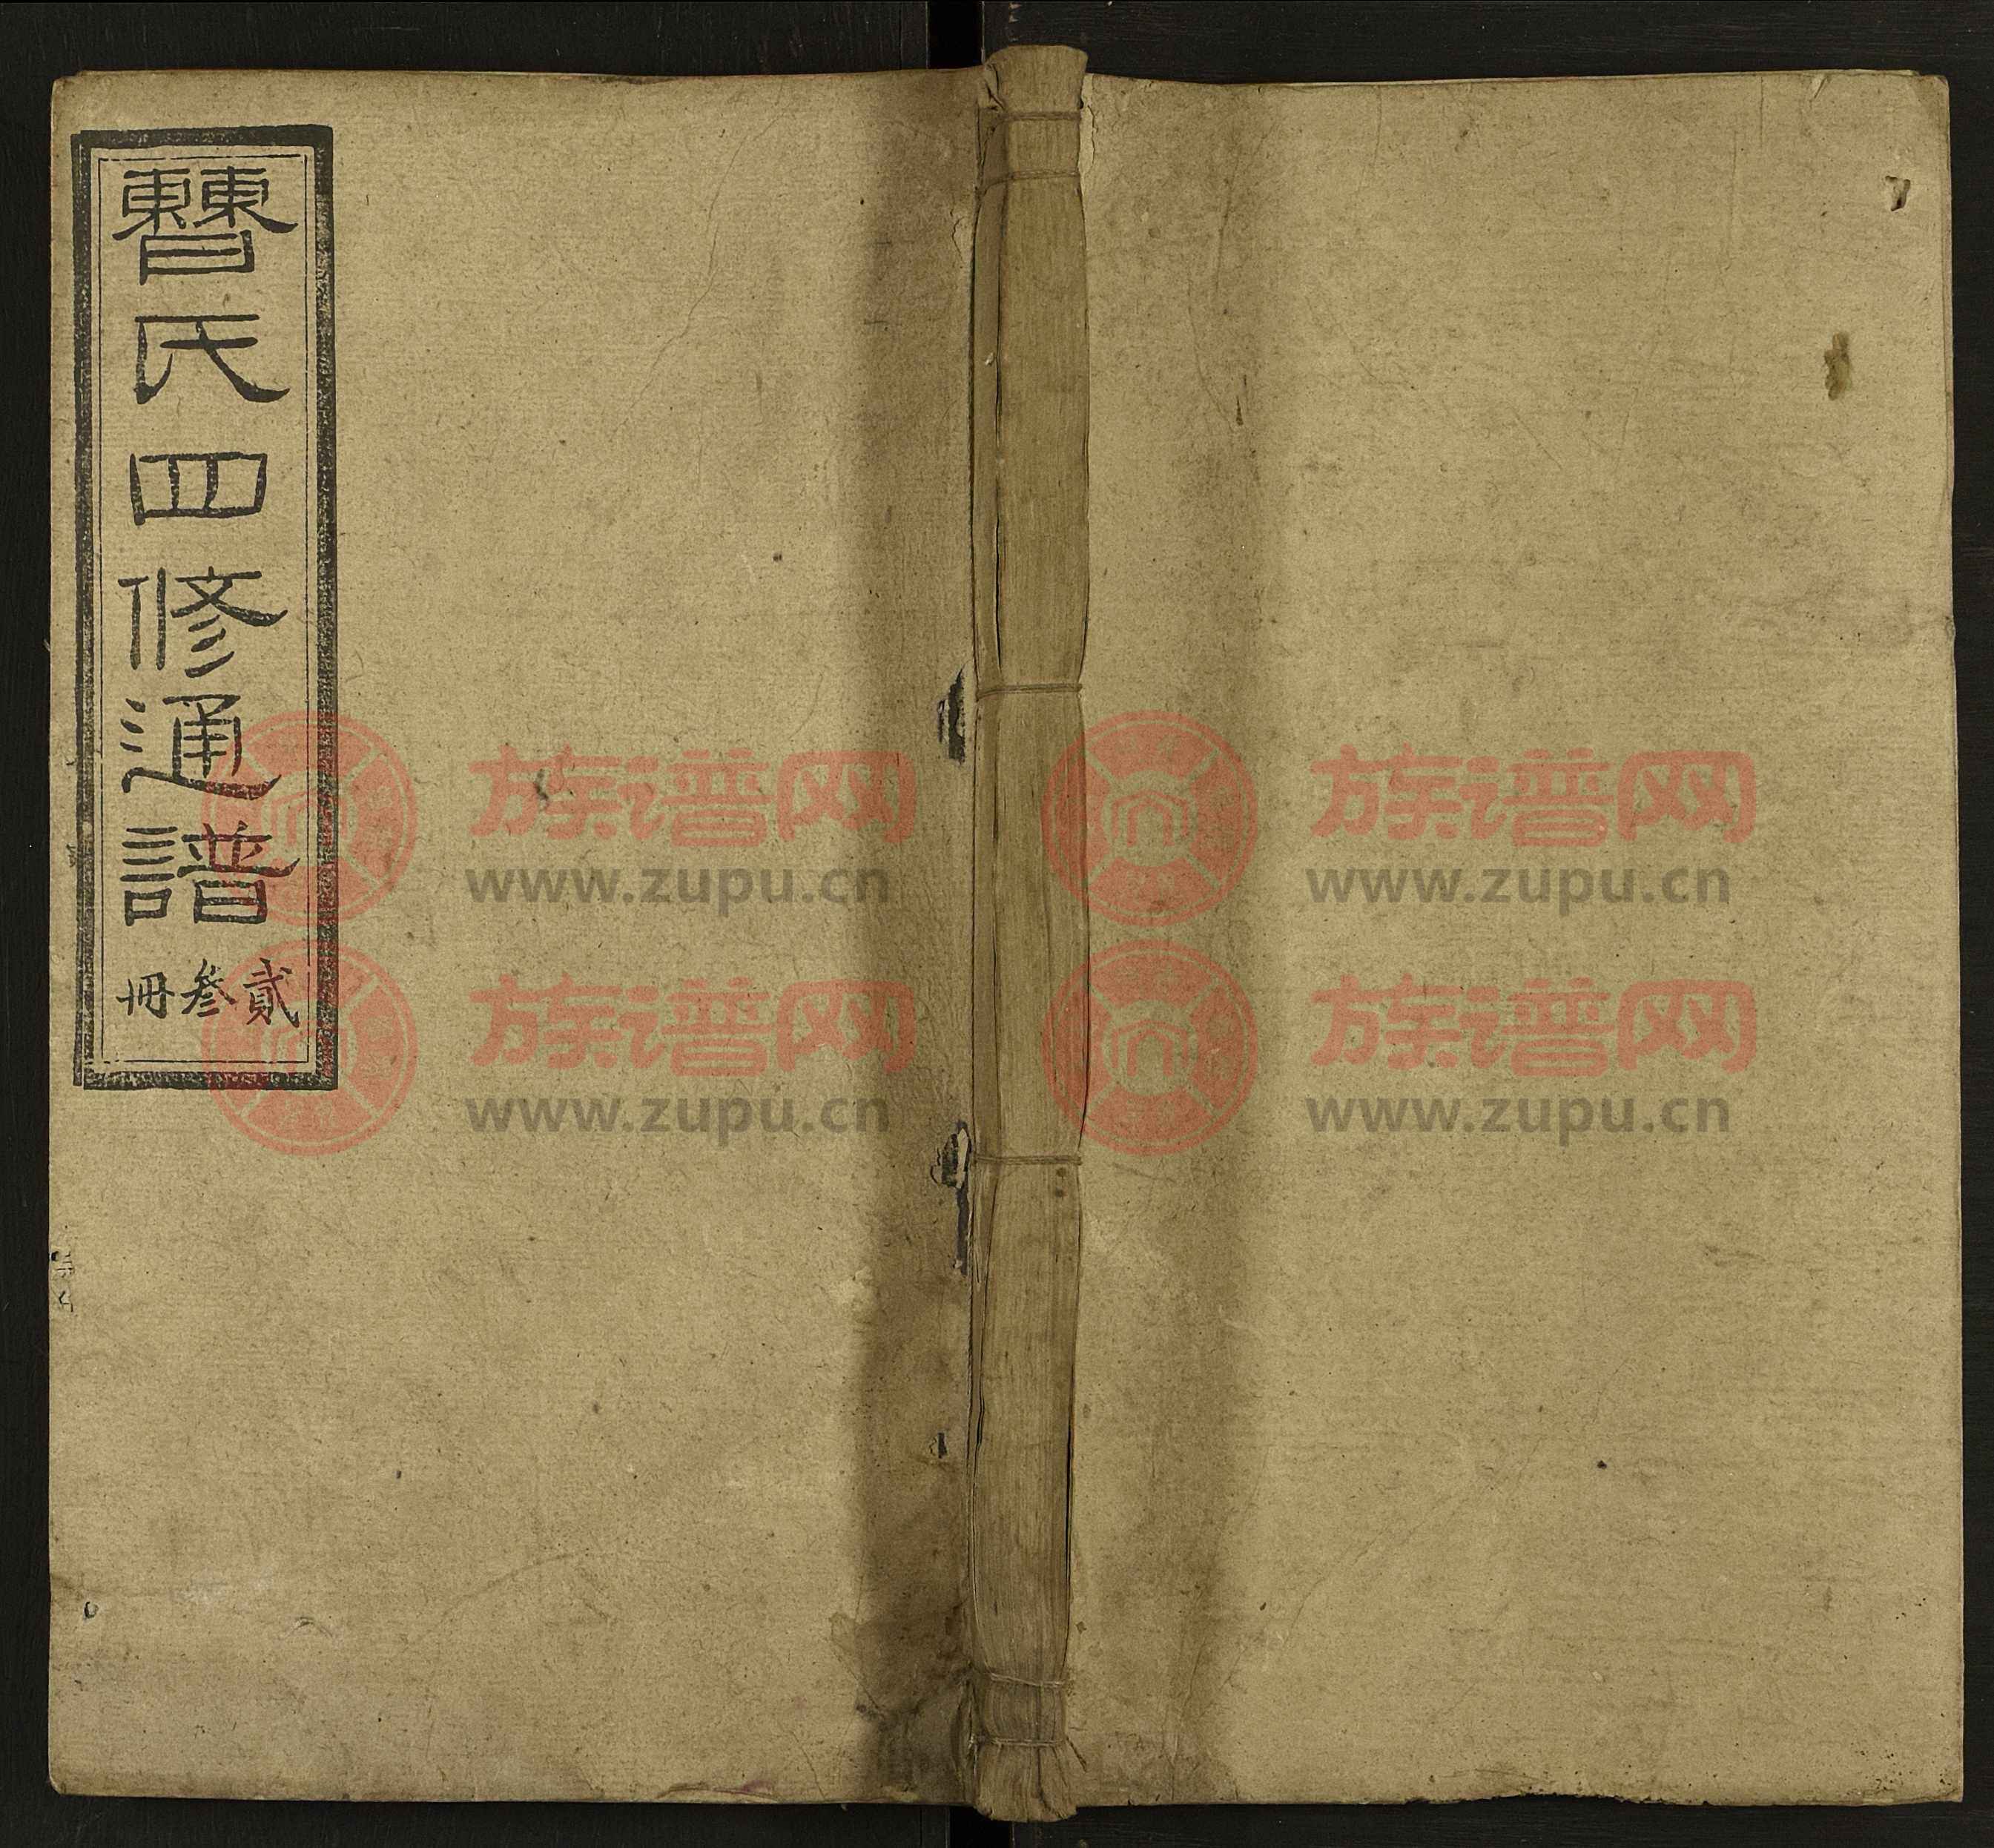 𣍘氏四修通譜
貳叄冊
族谱网
www.zupu.cn
族谱网
www.zupu.cn
族谱网
www.zupu.cn
族谱网
www.zupu.cn